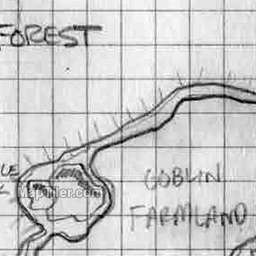 FOREST
MapTiler.com
GOBLIN
FARMLAND